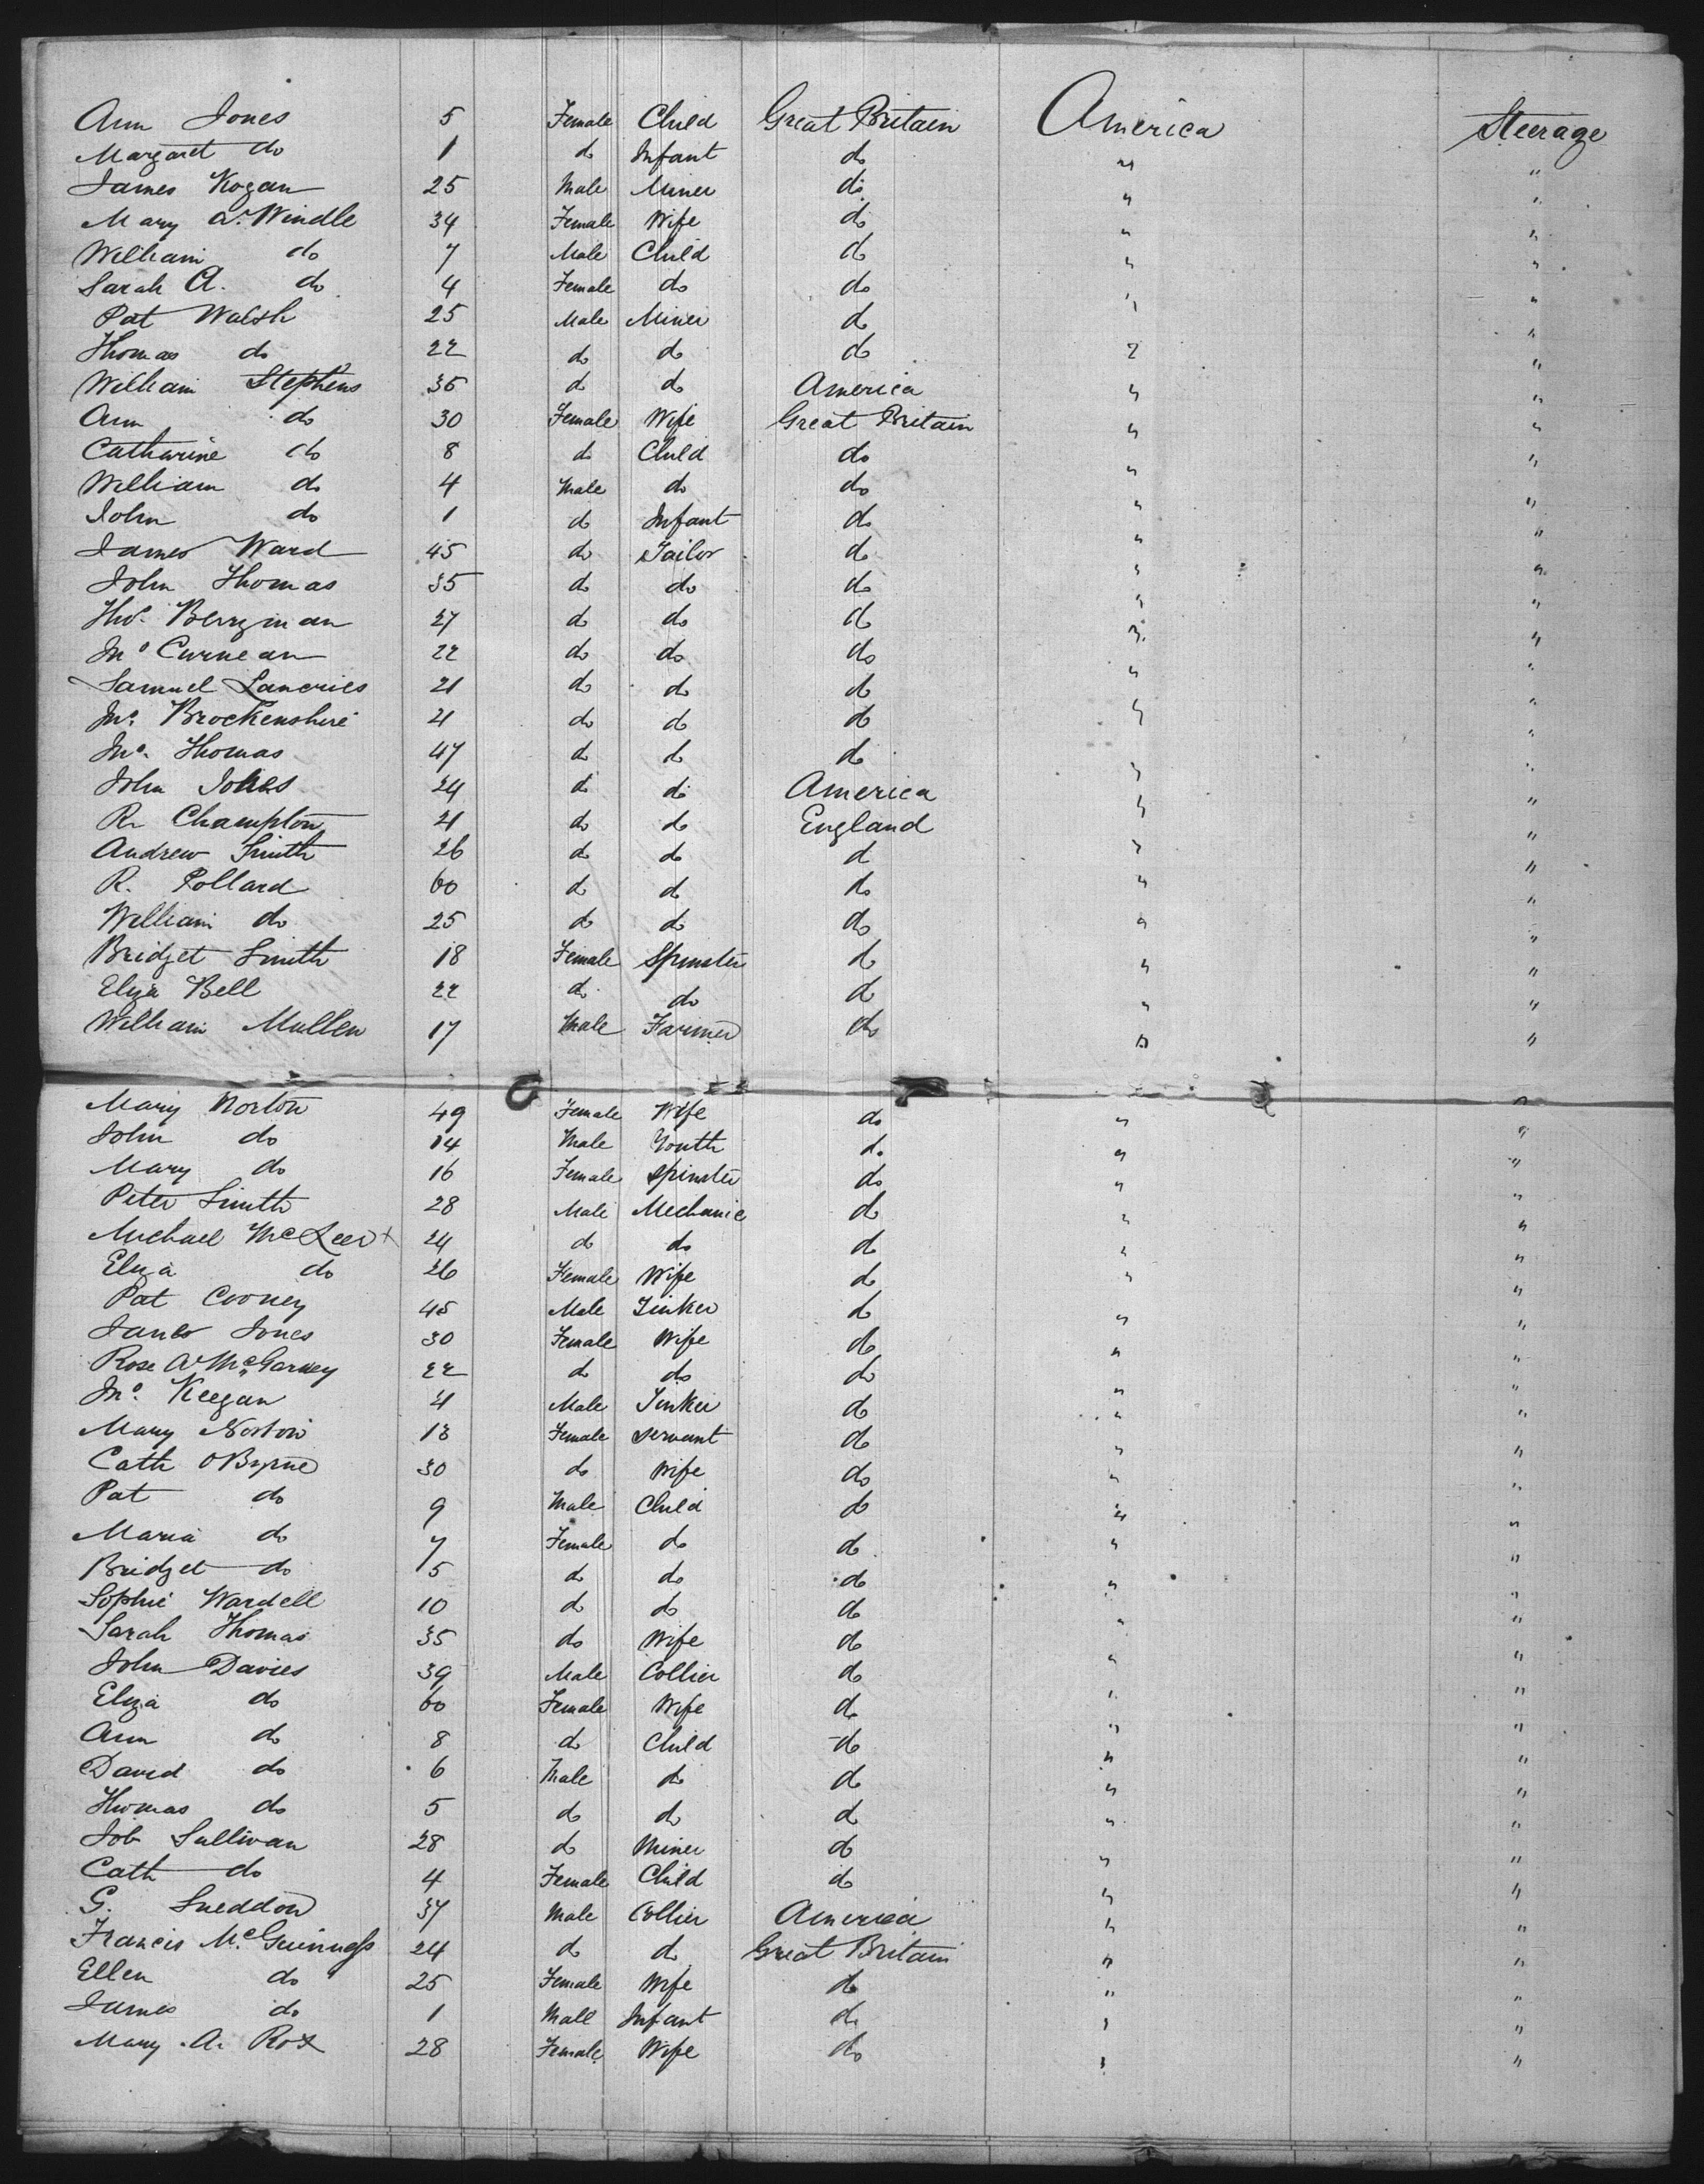 Ann Jones 5 Female Child Great Britain America Steerage
Margaret do 1 do Infant do " "
James Kogan 25 Male Miner do " "
Mary A. Windle 34 Female Wife do " "
William do 7 Male Child do " "
Sarah A. do 4 Female do do " "
Pat Walsh 25 Male Miner do " "
Thomas do 22 do do do " "
William Stephens 36 do do America " "
Ann do 30 Female Wife Great Britain " "
Catharine do 8 do Child do " "
William do 4 Male do do " "
John do 1 do Infant do " "
James Ward 45 do Tailor do " "
John Thomas 35 do do do " "
Thos. Berryman 27 do do do " "
Jno Curnean 22 do do do " "
Samuel Lancries 21 do do do " "
Jno. Brockenshire 21 do do do " "
Jno. Thomas 47 do do do " "
John Jones 24 do do America " "
R. Champlon 21 do do England " "
Andrew Smith 26 do do do " "
R. Pollard 60 do do do " "
William do 25 do do do " "
Bridget Smith 18 Female Spinster do " "
Eliza Bell 22 do do do " "
William Mullen 17 Male Farmer do " "
Mary Norton 49 Female Wife do " "
John do 14 Male Youth do " "
Mary do 16 Female Spinster do " "
Peter Smith 28 Male Mechanic do " "
Michael McLeer + 24 do do do " "
Eliza do 26 Female Wife do " "
Pat Cooney 45 Male Tinker do " "
James Jones 30 Female Wife do " "
Rose A. McGarvey 22 do do do " "
Jno. Keegan 21 Male Tinker do " "
Mary Norton 13 Female Servant do " "
Cath OByrne 30 do Wife do " "
Pat do 9 Male Child do " "
Maria do 7 Female do do " "
Bridget do 5 do do do " "
Sophie Wardell 10 do do do " "
Sarah Thomas 35 do Wife do " "
John Davies 39 Male Collier do " "
Eliza do 60 Female Wife do " "
Ann do 8 do Child do " "
David do 6 Male do do " "
Thomas do 5 do do do " "
Job Sullivan 28 do Miner do " "
Cath do 4 Female Child do " "
G. Sneddon 37 Male Collier America " "
Francis McGuinness 24 do do Great Britain " "
Ellen do 25 Female Wife do " "
James do 1 Male Infant do " "
Mary A. Rox 28 Female Wife do " "